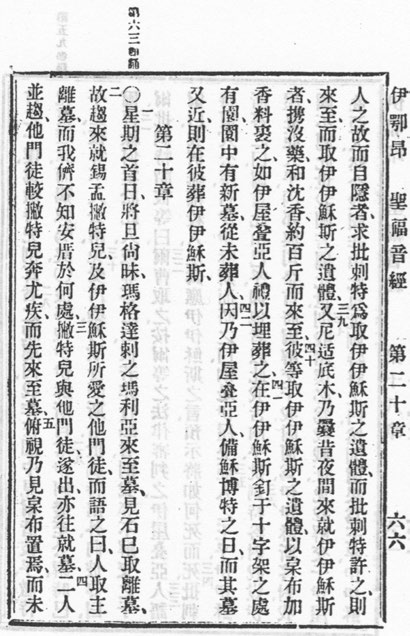 第六三
伊鄂昂 聖福音經 第二十章 六六
人之故而自隱者求批剌特爲取伊伊穌斯之遺體、而批剌特許之、則
來至而取伊伊穌斯之遺體、三九又尼适底木乃曩昔夜間來就伊伊穌斯
者、攜沒藥和沈香約百斤而來至、四十彼等取伊伊穌斯之遺體、以枲布加
香料裹之、如伊屋疊亞人禮以埋葬之、四一在伊伊穌斯釘于十字架之處
有園、園中有新墓、從未葬人、四二因乃伊屋疊亞人備穌博特之日、而其墓
又近、則在彼葬伊伊穌斯、
第二十章
〇一星期之首日、將旦尙昧、瑪格達剌之瑪利亞來至墓、見石已取離墓、
二故趨來就錫孟撇特兒、及伊伊穌斯所愛之他門徒、而語之曰、人取主
離墓、而我儕不知安厝於何處、三撇特兒與他門徒、遂出亦往就墓、四二人
並趨、他門徒較撇特兒奔尤疾、而先來至墓、五俯視乃見枲布置焉、而未